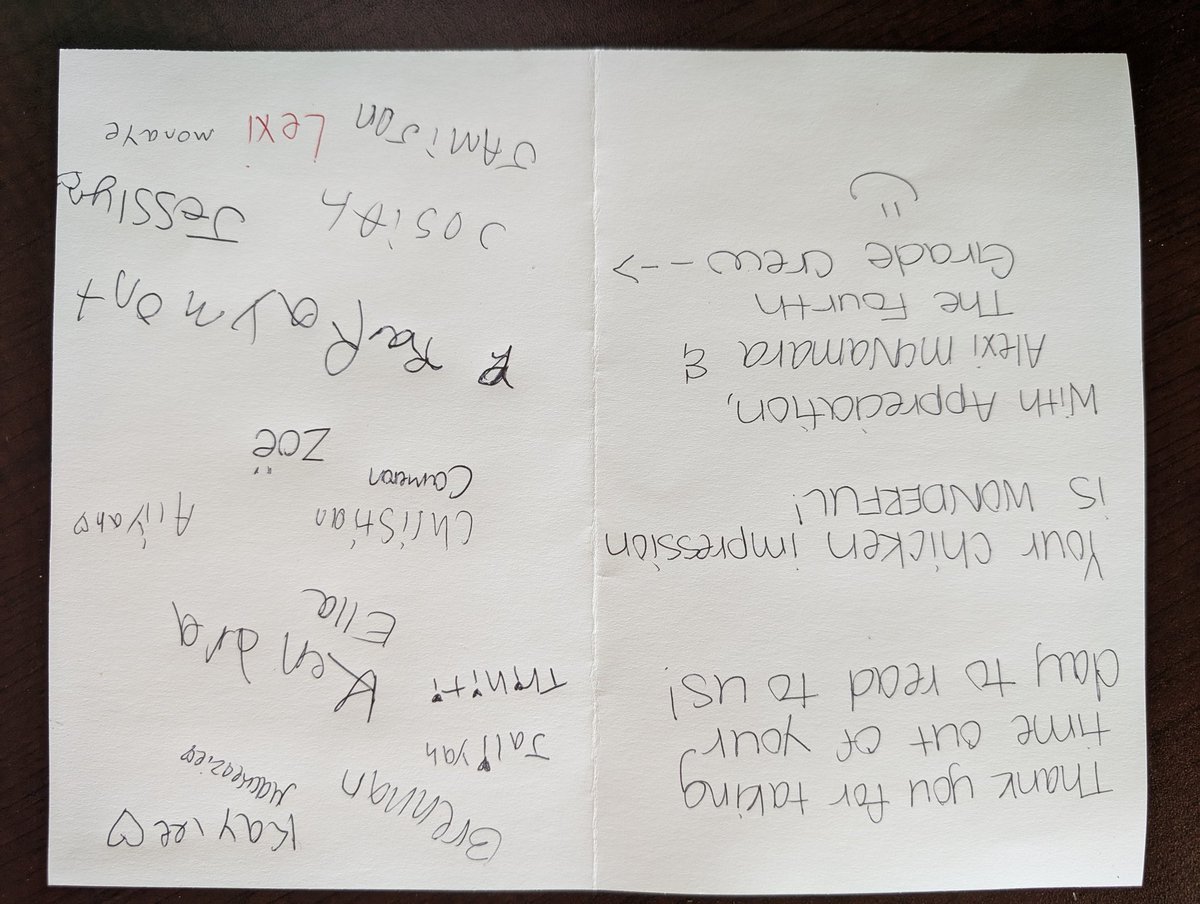 Thank you for taking
time out of your
day to read to us!
Your chicken impression
is WONDERFUL!
With Appreciation,
Alexi McNamara &
The Fourth
Grade Crew --->
Brennan Kaylee ♡
Jaliyah
Triniti Kendra
Ella
Christian Aliyah ♡
Cameron
Zoë
RaRaymont
Josiah Jesslyn
Jamison Lexi monaye